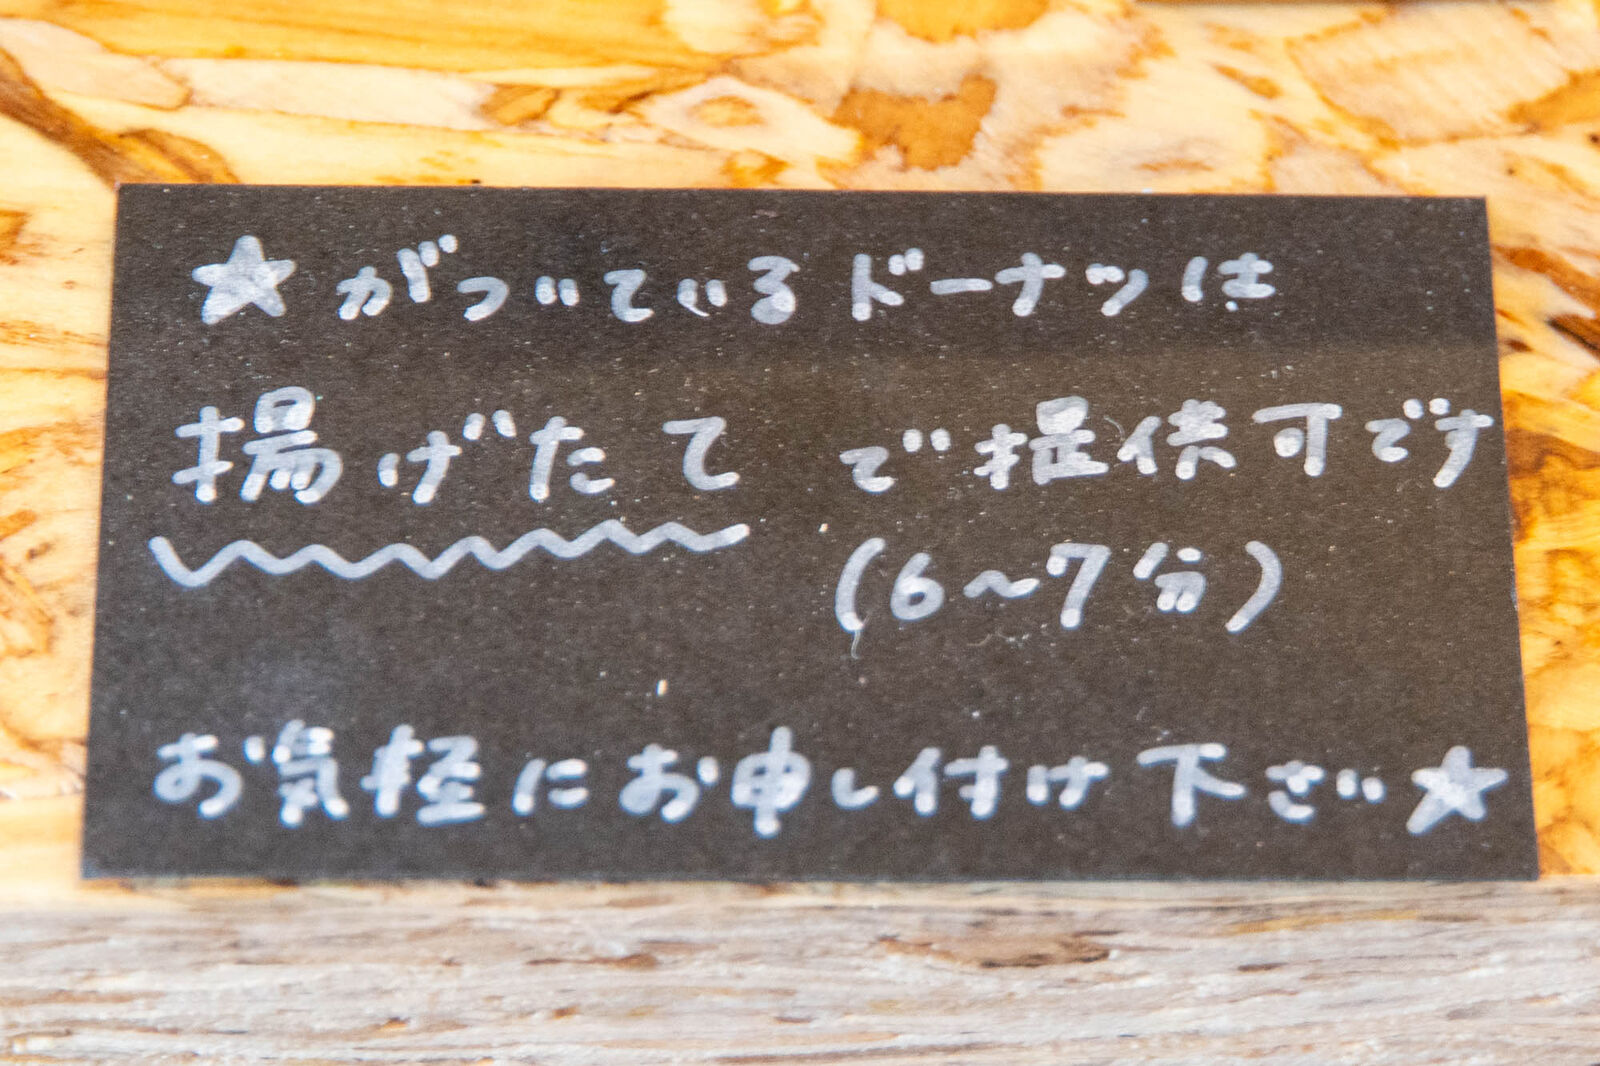 ★がついているドーナツは
揚げたて で提供可です
(6〜7分)
お気軽にお申し付け下さい★